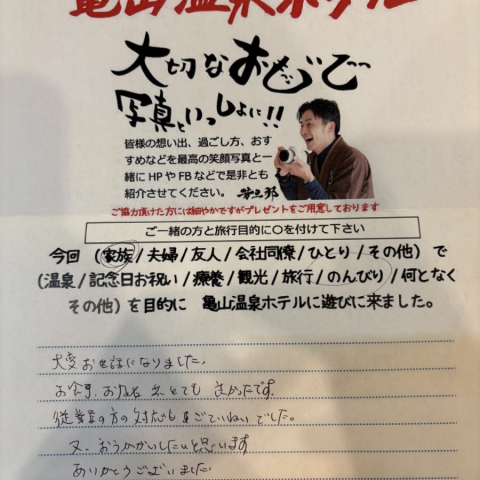 亀山温泉ホテル
大切なおもいで
写真といっしょに!!
皆様の想い出、過ごし方、おす
すめなどを最高の笑顔写真と一
緒にHPやFBなどで是非とも
紹介させてください。
ご協力頂けた方には細やかですがプレゼントをご用意しております
ご一緒の方と旅行目的に〇を付けて下さい
今回 (家族/夫婦/友人/会社同僚/ひとり/その他) で
(温泉/記念日お祝い/療養/観光/旅行/のんびり/何となく
その他) を目的に 亀山温泉ホテルに遊びに来ました。
大変お世話になりました。
お食事、お風呂 とても よかったです。
従業員の方の対応もていねいでした。
又、おうかがいしたいと思います
ありがとうございました